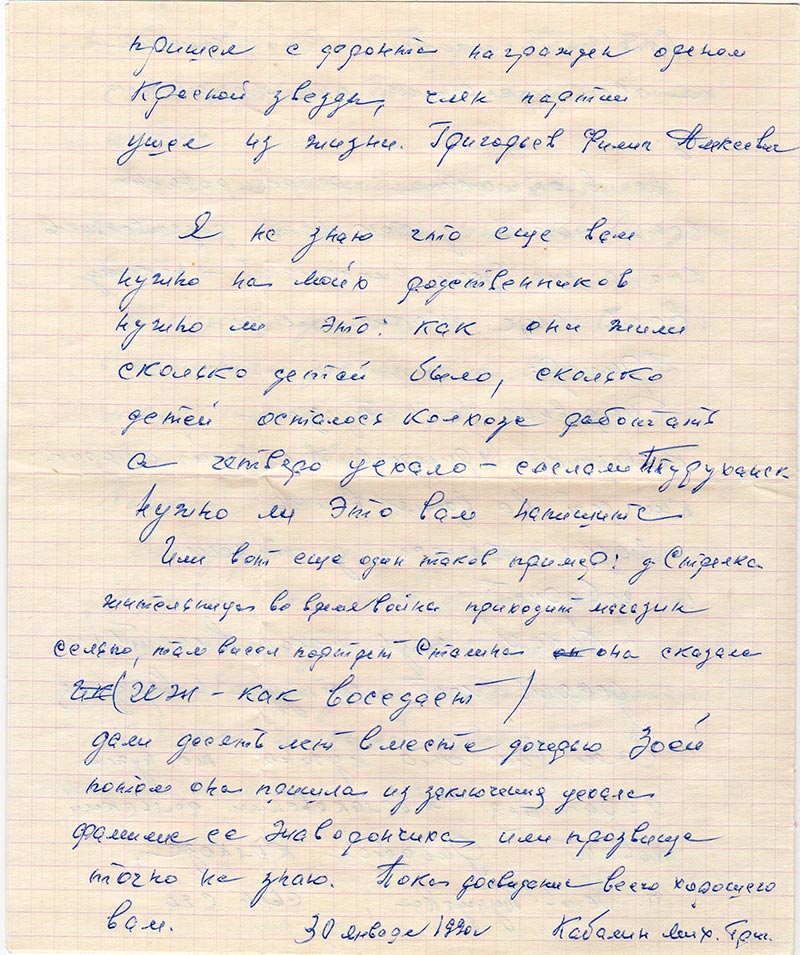 пришел с фронта награжден орденом
Красной звезды, член партии
ушел из жизни. Григорьев Филип Алексеевич
Я не знаю что еще вам
нужно на моих родственников
нужно ли это: как они жили
сколько детей было, сколько
детей осталося колхозе работать
а четверо уехало – сослали Туруханск
Нужно ли это вам напишите
Или вот еще один таков пример: д Стрелка
жительница во время войны приходит магазин
сельпо, там висел портрет Сталина она сказала
(ИШ – как воседает)
дали десять лет вместе дочерью Зоей
потом она пришла из заключения уехала
фамилие ее или прозвище
точно не знаю. Пока досвидание всего хорошего
вам. 30 января 1990г Кабалин Мих. Григ.